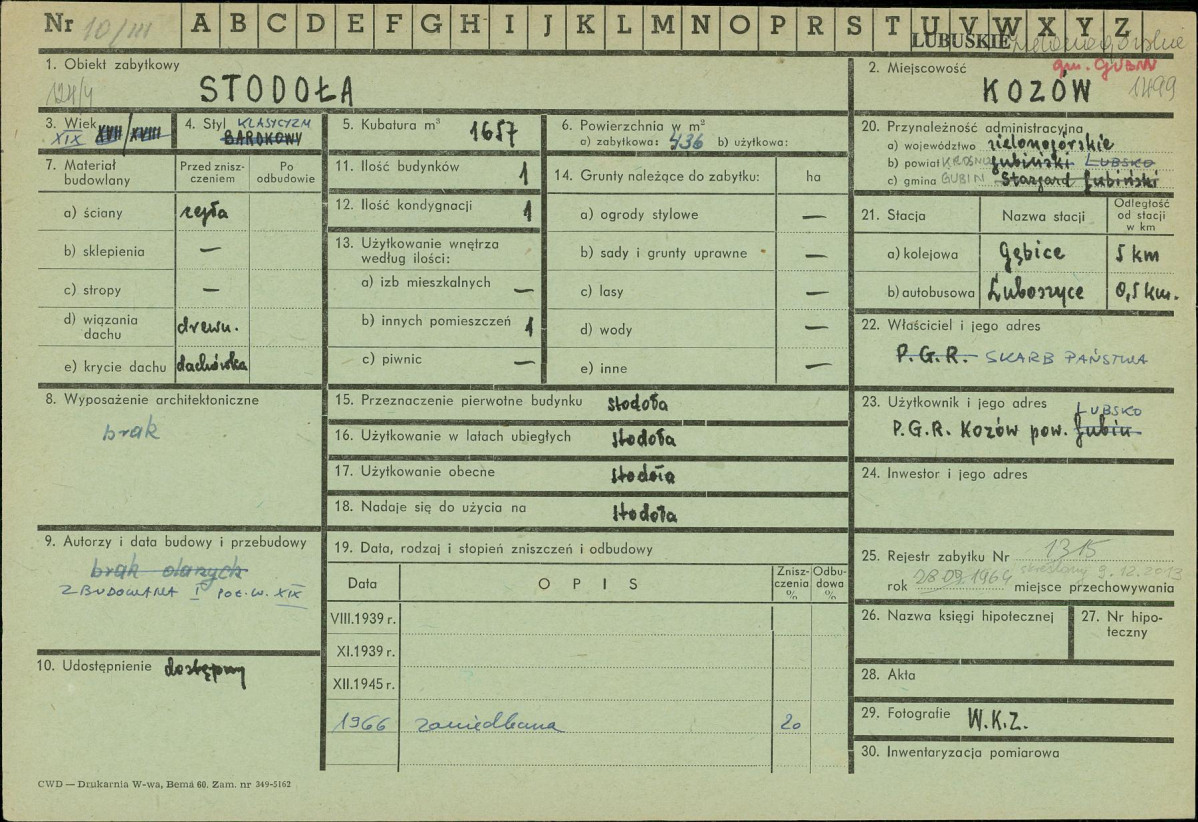 Nr 10/III A B C D E F G H I J K L M N O P R S T U V W X Y Z
LUBUSKIE zielonogórskie
1. Obiekt zabytkowy
124/4 STODOŁA
2. Miejscowość gm. GUBIN
KOZÓW 1499
3. Wiek
XIX XVII/XVIII
4. Styl KLASYCYZM
BAROKOWY
5. Kubatura m³ 1657
6. Powierzchnia w m²
a) zabytkowa: 436 b) użytkowa:
7. Materiał budowlany
Przed zniszczeniem
Po odbudowie
a) ściany cegła
b) sklepienia —
c) stropy —
d) wiązania dachu drewn.
e) krycie dachu dachówka
8. Wyposażenie architektoniczne
brak
9. Autorzy i data budowy i przebudowy
brak danych
ZBUDOWANA I POŁ. W. XIX
10. Udostępnienie dostępny
11. Ilość budynków 1
12. Ilość kondygnacji 1
13. Użytkowanie wnętrza
według ilości:
a) izb mieszkalnych —
b) innych pomieszczeń 1
c) piwnic —
14. Grunty należące do zabytku: ha
a) ogrody stylowe —
b) sady i grunty uprawne —
c) lasy —
d) wody —
e) inne —
15. Przeznaczenie pierwotne budynku stodoła
16. Użytkowanie w latach ubiegłych stodoła
17. Użytkowanie obecne stodoła
18. Nadaje się do użycia na stodoła
19. Data, rodzaj i stopień zniszczeń i odbudowy
Data OPIS Zniszczenia % Odbudowa %
VIII.1939 r.
XI.1939 r.
XII.1945 r.
1966 zaniedbana 20
20. Przynależność administracyjna
a) województwo zielonogórskie
b) powiat KROSNO gubiński LUBSKO
c) gmina GUBIN Stargard Gubiński
21. Stacja Nazwa stacji Odległość od stacji w km
a) kolejowa Gębice 5 km
b) autobusowa Luboszyce 0,5 km.
22. Właściciel i jego adres
P.G.R. SKARB PAŃSTWA
23. Użytkownik i jego adres
LUBSKO
P.G.R. Kozów pow. Gubin
24. Inwestor i jego adres
25. Rejestr zabytku Nr 1315
skreślony 9.12.2013
rok 28.09.1964 miejsce przechowywania
26. Nazwa księgi hipotecznej
27. Nr hipoteczny
28. Akta
29. Fotografie W.K.Z.
30. Inwentaryzacja pomiarowa
CWD — Drukarnia W-wa, Bema 60. Zam. nr 349-5162